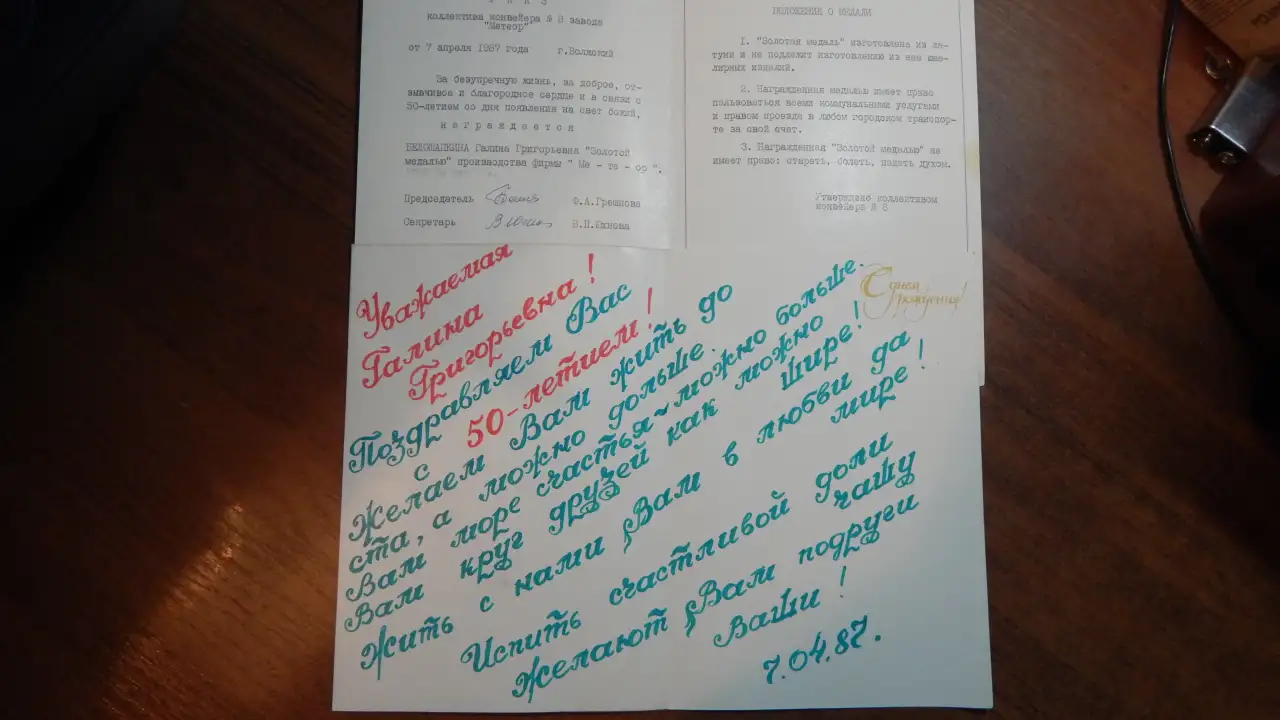 коллектива конвейера № 8 завода
"Метеор"
от 7 апреля 1987 года г.Волжский
За безупречную жизнь, за доброе, от-
зывчивое и благородное сердце и в связи с
50-летием со дня появления на свет божий,
н а г р а ж д а е т с я
БЕЛОШАПКИНА Галина Григорьевна "Золотой
медалью" производства фирмы " Ме - те - ор ".
Председатель Ф.А.Грешнова
Секретарь
ПОЛОЖЕНИЕ О МЕДАЛИ
1. "Золотая медаль" изготовлена из ла-
туни и не подлежит изготовлению из нее юве-
лирных изделий.
2. Награжденная медалью имеет право
пользоваться всеми коммунальными услугами
и правом проезда в любом городском транспор-
те за свой счет.
3. Награжденная "Золотой медалью" не
имеет право: стареть, болеть, падать духом.
Утверждено коллективом
конвейера № 8
С днем
рождения!
Уважаемая
Галина
Григорьевна!
Поздравляем Вас
с 50-летием!
Желаем Вам жить до
ста, а можно дольше.
Вам море счастья-можно больше.
Вам круг друзей как можно
шире!
Жить с нами Вам в любви да
мире!
Испить счастливой доли
чашу
Желают Вам подруги
Ваши!
7.04.87.